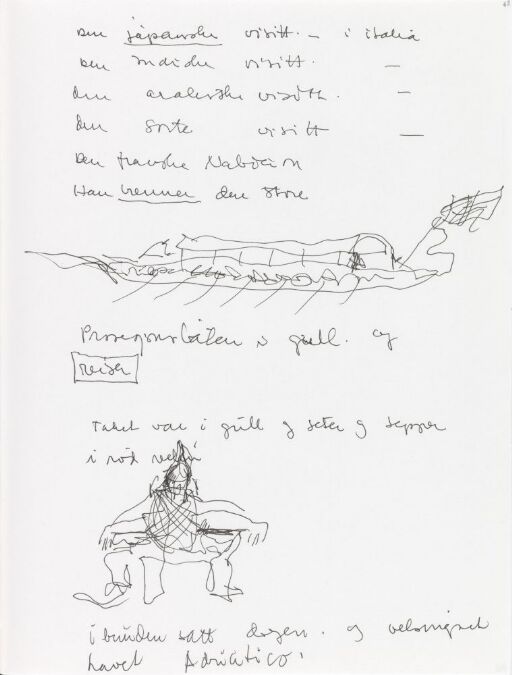 Den japanske visitt. – i italia
Den indiske visitt. –
den arabiske visitt. –
den sorte visitt —
Den franske Naboen
Han brenner den store
Prosesjonsbåten i gull. og
reiser
Taket var i gull og seter og tepper
i rød
i bunnen satt dogen. og velsignet
havet Adriatico!